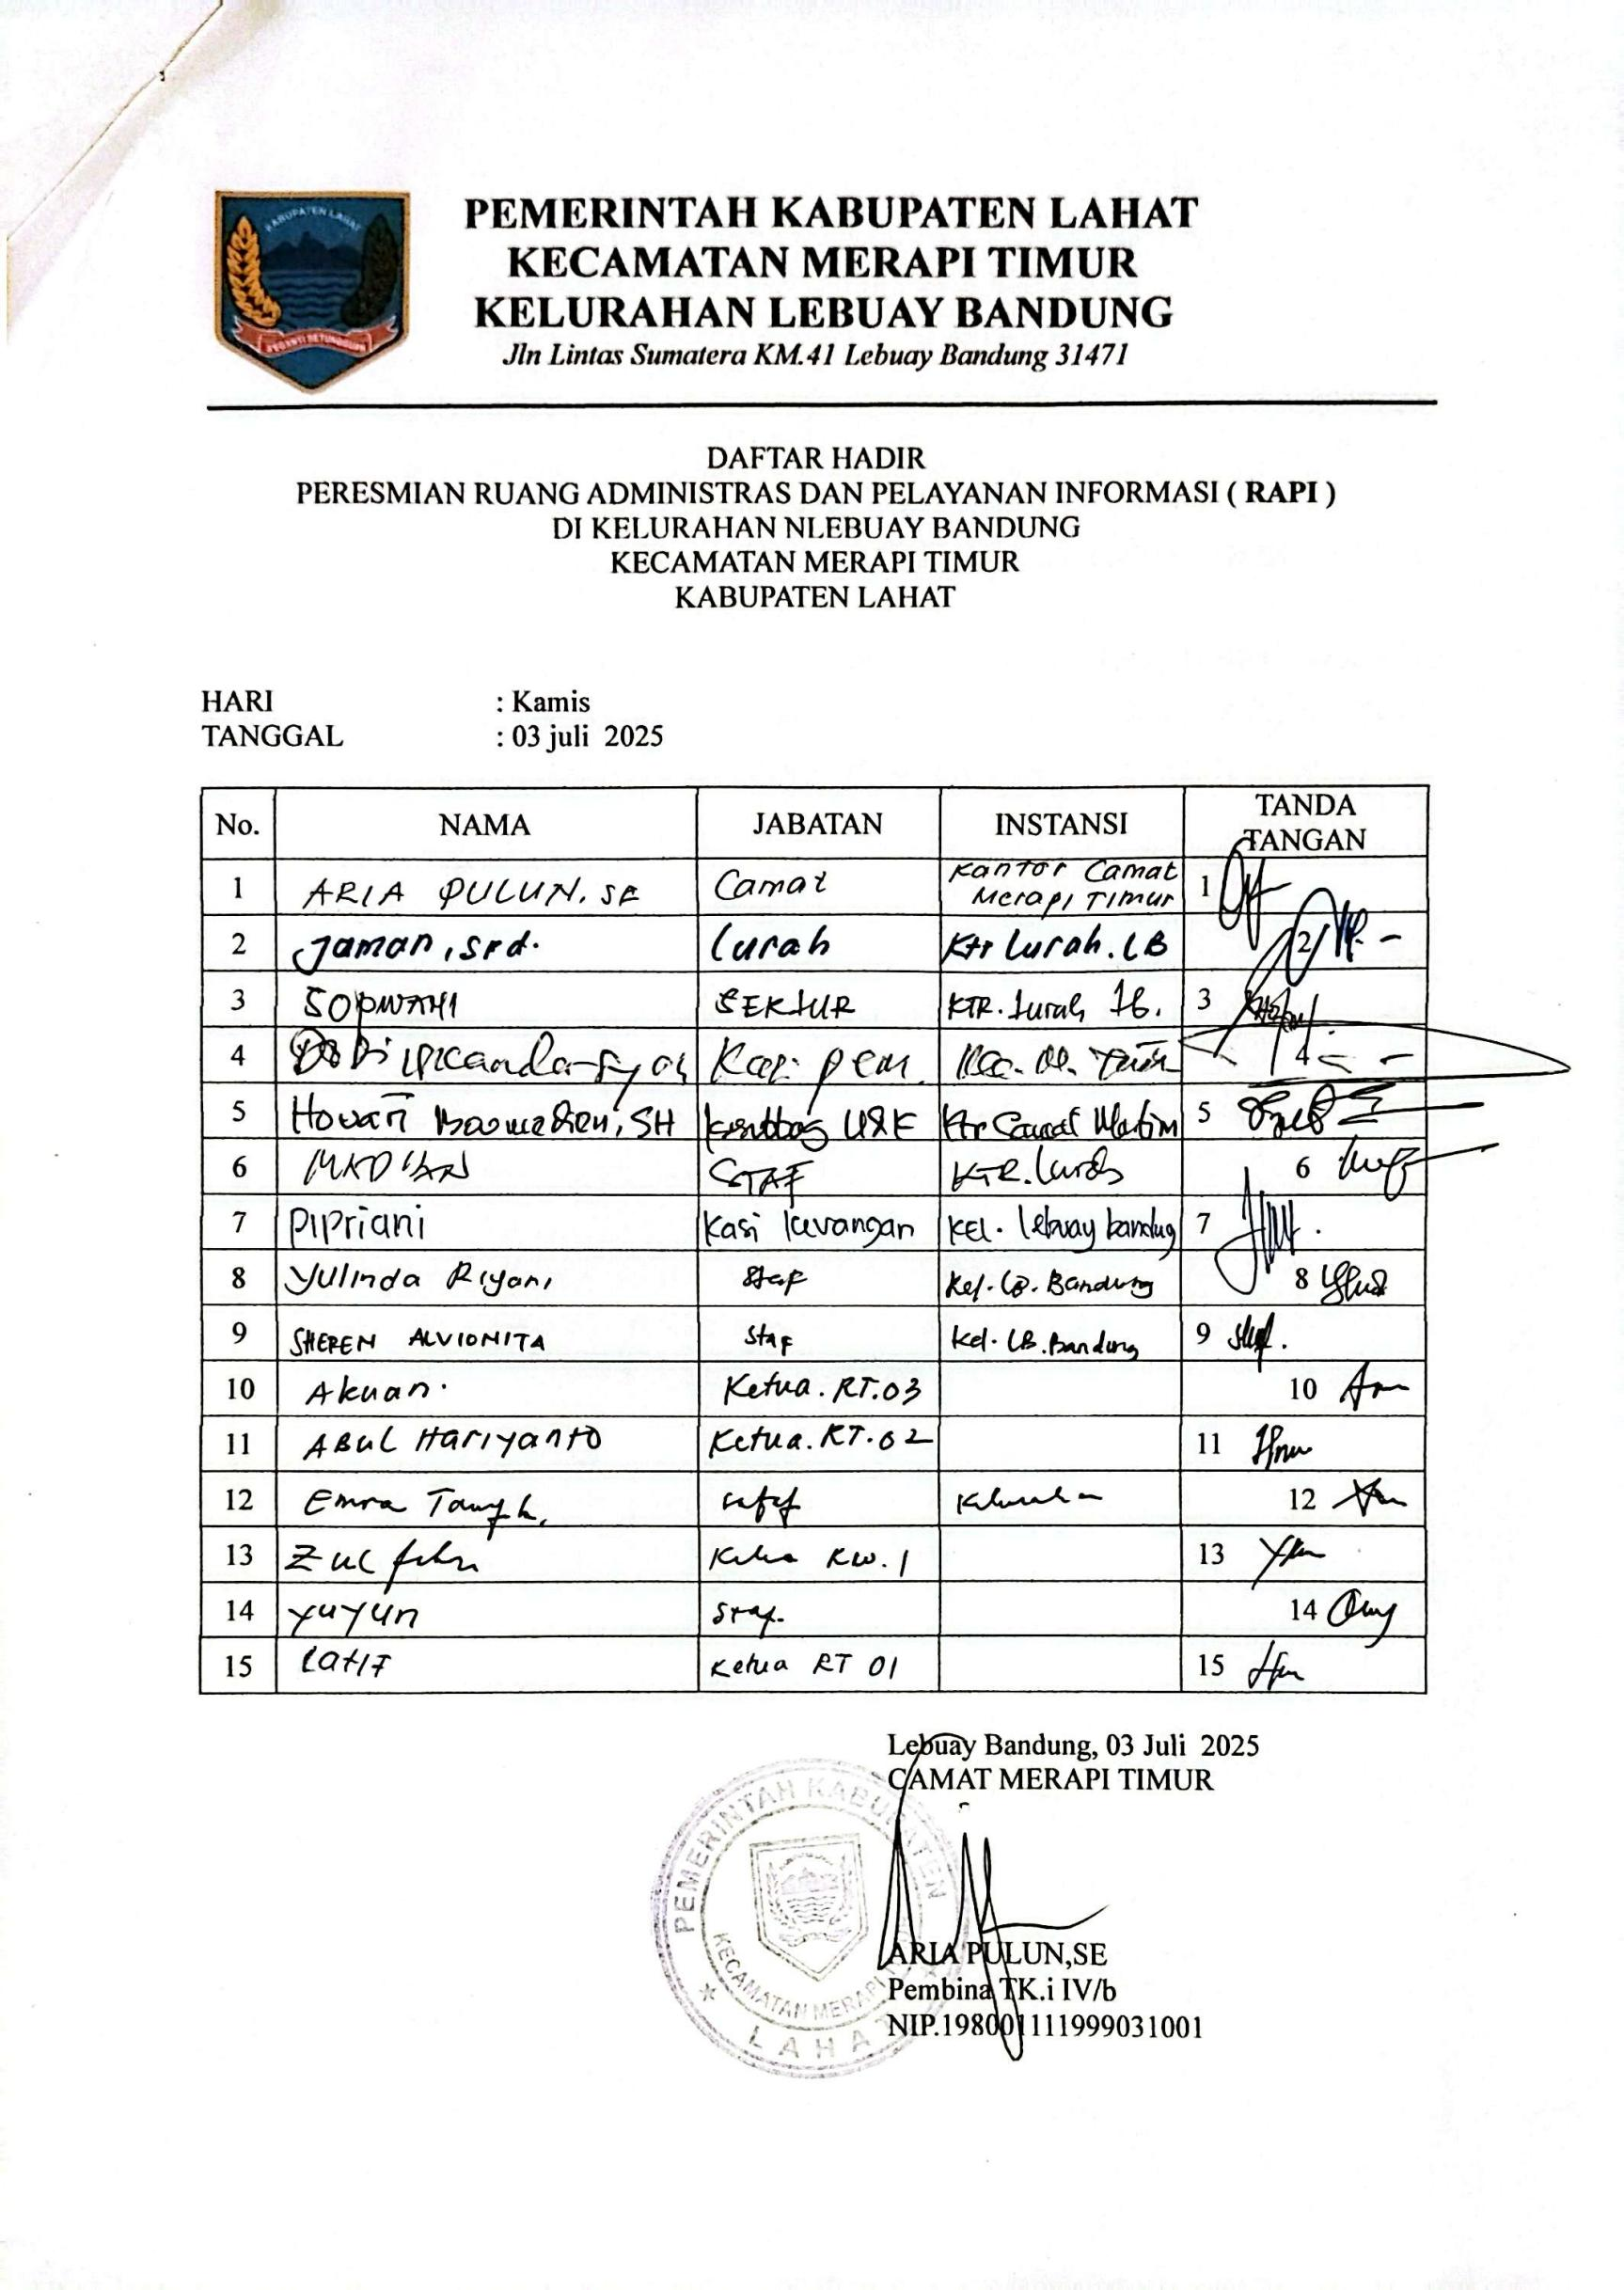 KABUPATEN LAHAT
PEMERINTAH KABUPATEN LAHAT
KECAMATAN MERAPI TIMUR
KELURAHAN LEBUAY BANDUNG
Jln Lintas Sumatera KM.41 Lebuay Bandung 31471
DAFTAR HADIR
PERESMIAN RUANG ADMINISTRAS DAN PELAYANAN INFORMASI ( RAPI )
DI KELURAHAN NLEBUAY BANDUNG
KECAMATAN MERAPI TIMUR
KABUPATEN LAHAT
HARI : Kamis
TANGGAL : 03 juli 2025
No. NAMA JABATAN INSTANSI TANDA TANGAN
1 ARIA PULUN, SE Camat Kantor Camat Merapi Timur 1
2 Jaman, SPd. Lurah Ktr Lurah. LB 2
3 SOPWAHI SEKLUR KTR. Lurah 3
4 4
5 SH Ktr Camat 5
6 STAF KTR. Lurah 6
7 PIPRIANI Kasi keuangan Kel. lebuay bandug 7
8 Yulinda Riyani Staf Kel. LB. Bandung 8
9 SHEREN ALVIONITA Staf Kel. LB. Bandung 9
10 Akuan. Ketua. RT.03 10
11 ABUL Hariyanto Ketua. RT. 02 11
12 Emra 12
13 Zul Ketua RW. 1 13
14 Yuyun Staf. 14
15 LATIF Ketua RT 01 15
Lebuay Bandung, 03 Juli 2025
CAMAT MERAPI TIMUR
PEMERINTAH KABUPATEN
KECAMATAN MERAPI
LAHAT
ARIA PULUN,SE
Pembina TK.i IV/b
NIP.198001111999031001